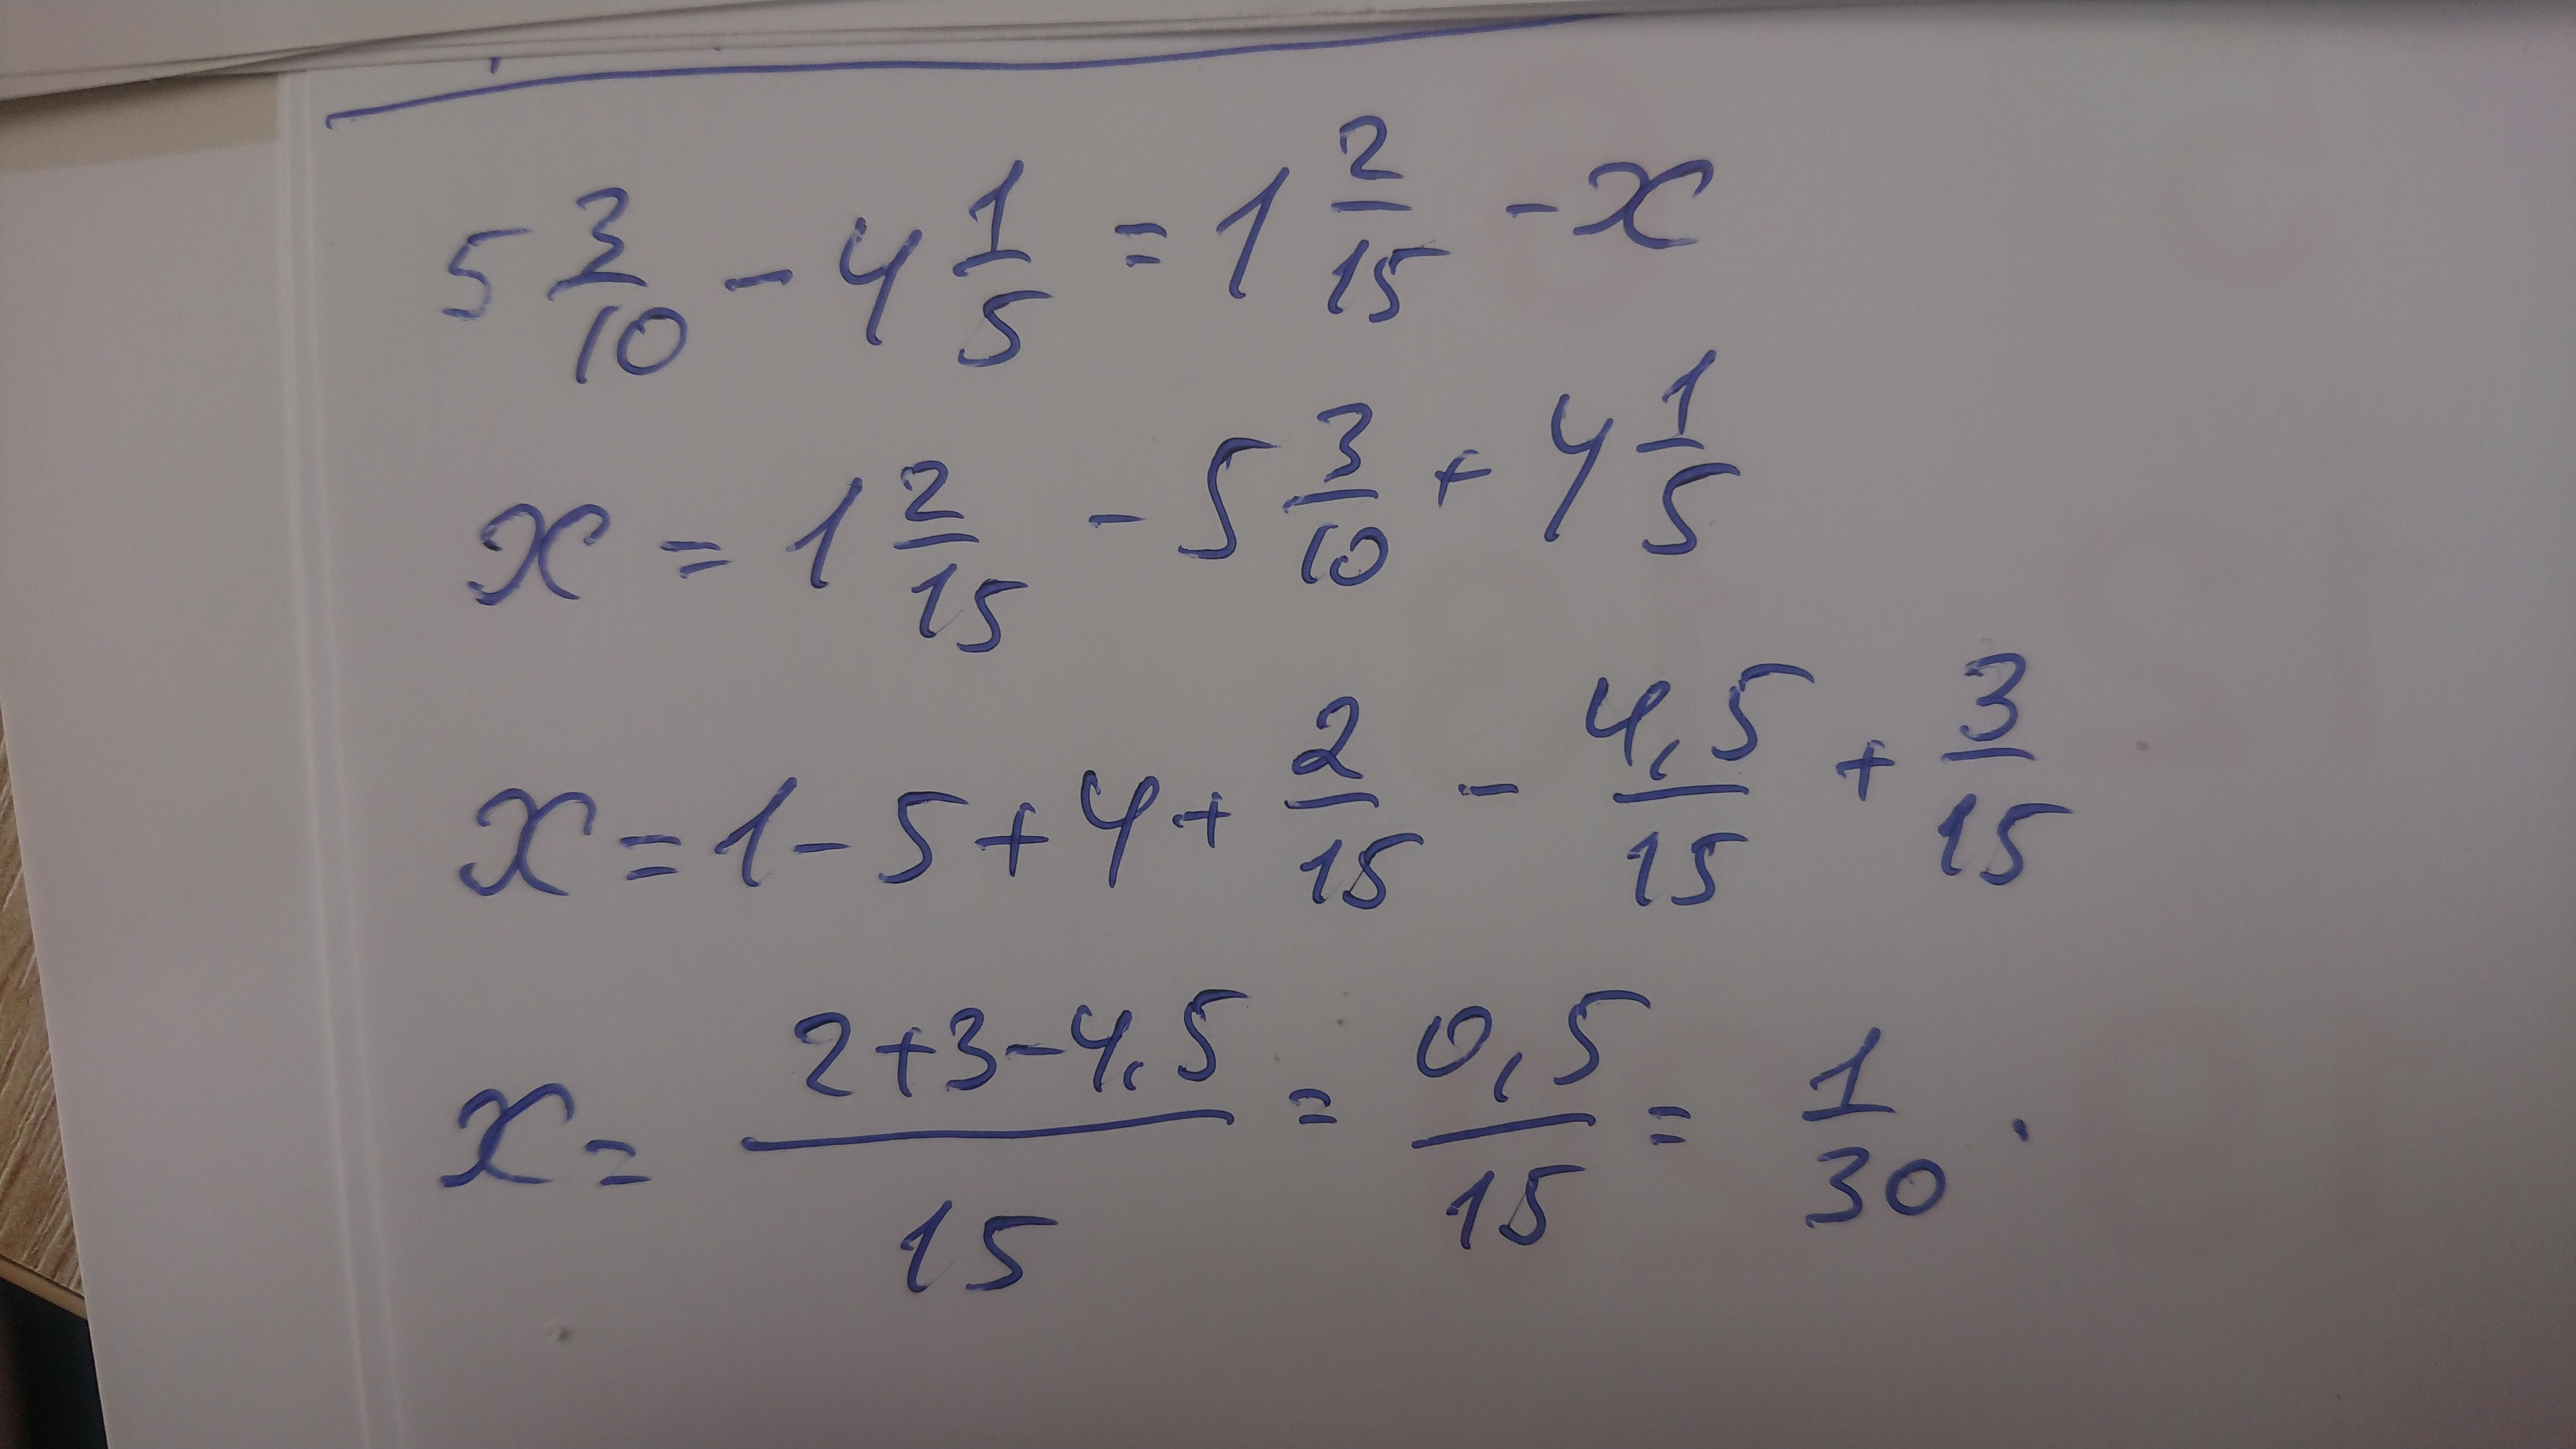 5 3/10 - 4 1/5 = 1 2/15 - x
x = 1 2/15 - 5 3/10 + 4 1/5
x = 1 - 5 + 4 + 2/15 - 4,5/15 + 3/15
x = (2+3-4,5)/15 = 0,5/15 = 1/30 .